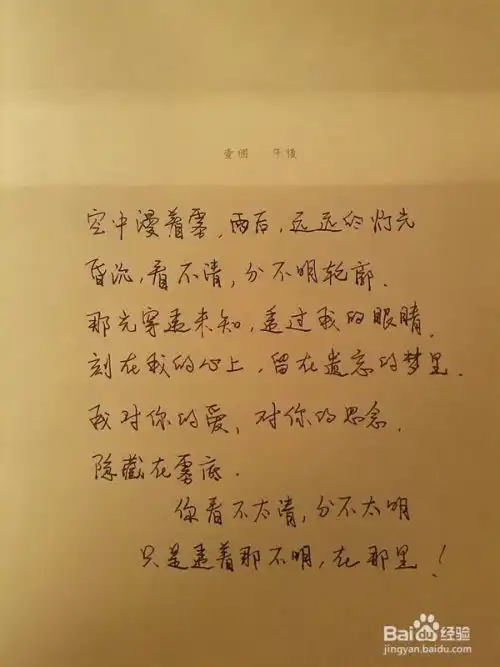 壹個 午後
空中漫着雾,雨后,远远的灯光
昏沉,看不清,分不明轮廓.
那光穿透未知,透过我的眼睛.
刻在我的心上,留在遗忘的梦里.
我对你的爱、对你的思念.
隐藏在雾底.
你看不太清,分不太明
只是透着那不明,在那里!
Baidu经验
jingyan.baidu.com